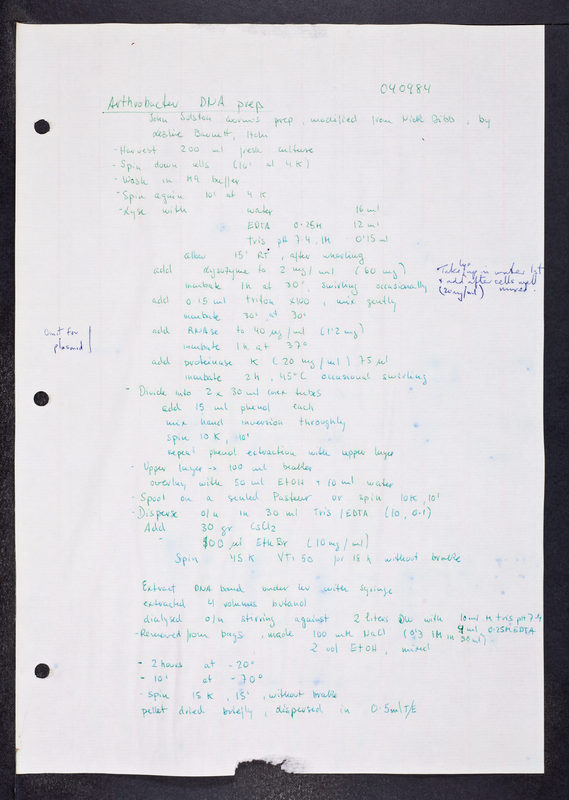 040984
Arthrobacter DNA prep
John Sulston worms prep, modified from Nick Gibb, by
Leslie Barnett, Itohi
- Harvest 200 ml fresh culture
- Spin down cells (10' at 4K)
- Wash in M9 buffer
- Spin again 10' at 4K
- Lyse with water 16 ml
EDTA 0.25M 12 ml
Tris pH 7.4, 1M 0.15 ml
allow 15' RT, after whirling
add lysozyme to 2 mg/ml (60 mg)
incubate 1h at 30°, swirling occasionally
Take lyso up in water 1st
& add after cells well
(20mg/ml) mixed.
add 0.15 ml triton X100, mix gently
incubate 30' at 30°
Omit for
plasmid
add RNAse to 40 µg/ml (1.2 mg)
incubate 1h at 37°
add proteinase K (20 mg/ml) 75 µl
incubate 2h, 45°C occasional swirling
- Divide into 2 x 30 ml corex tubes
add 15 ml phenol each
mix hand inversion throughly
spin 10K, 10'
repeat phenol extraction with upper layer
- Upper layer → 100 ml beaker
overlay with 50 ml EtOH + 10 ml water
- Spool on a sealed Pasteur or spin 10K, 10'
- Disperse o/n in 30 ml Tris/EDTA (10, 0.1)
Add 30 gr CsCl2
" 500 µl EthBr (10 mg/ml)
Spin 45K VTi 50 for 18 h without brake
Extract DNA band under UV with syringe
extracted 4 volumes butanol
dialysed o/n stirring against 2 liters DW with 10 ml M tris pH 7.4
4 ml 0.25M EDTA
- Removed from bags, made 100 mM NaCl (0.3 1M in 30ml)
2 vol EtOH, mixed
- 2 hours at -20°
- 10' at -70°
- spin 15K, 15', without brake
pellet dried briefly, dispersed in 0.5ml T/E